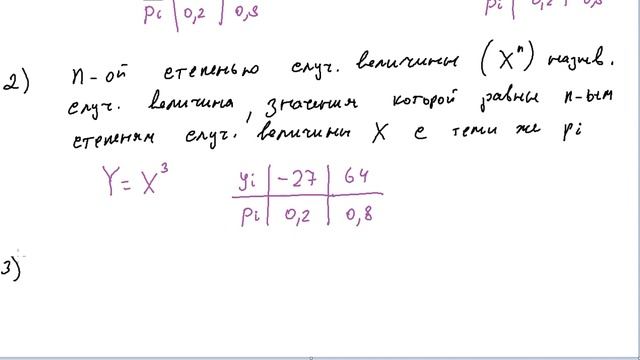 Pi | 0,2 | 0,8
2) n-ой степенью случ. величины (Xⁿ) назыв.
случ. величина, значения которой равны n-ым
степеням случ. величины X с теми же pi
Y = X³
yi | -27 | 64
Pi | 0,2 | 0,8
3)